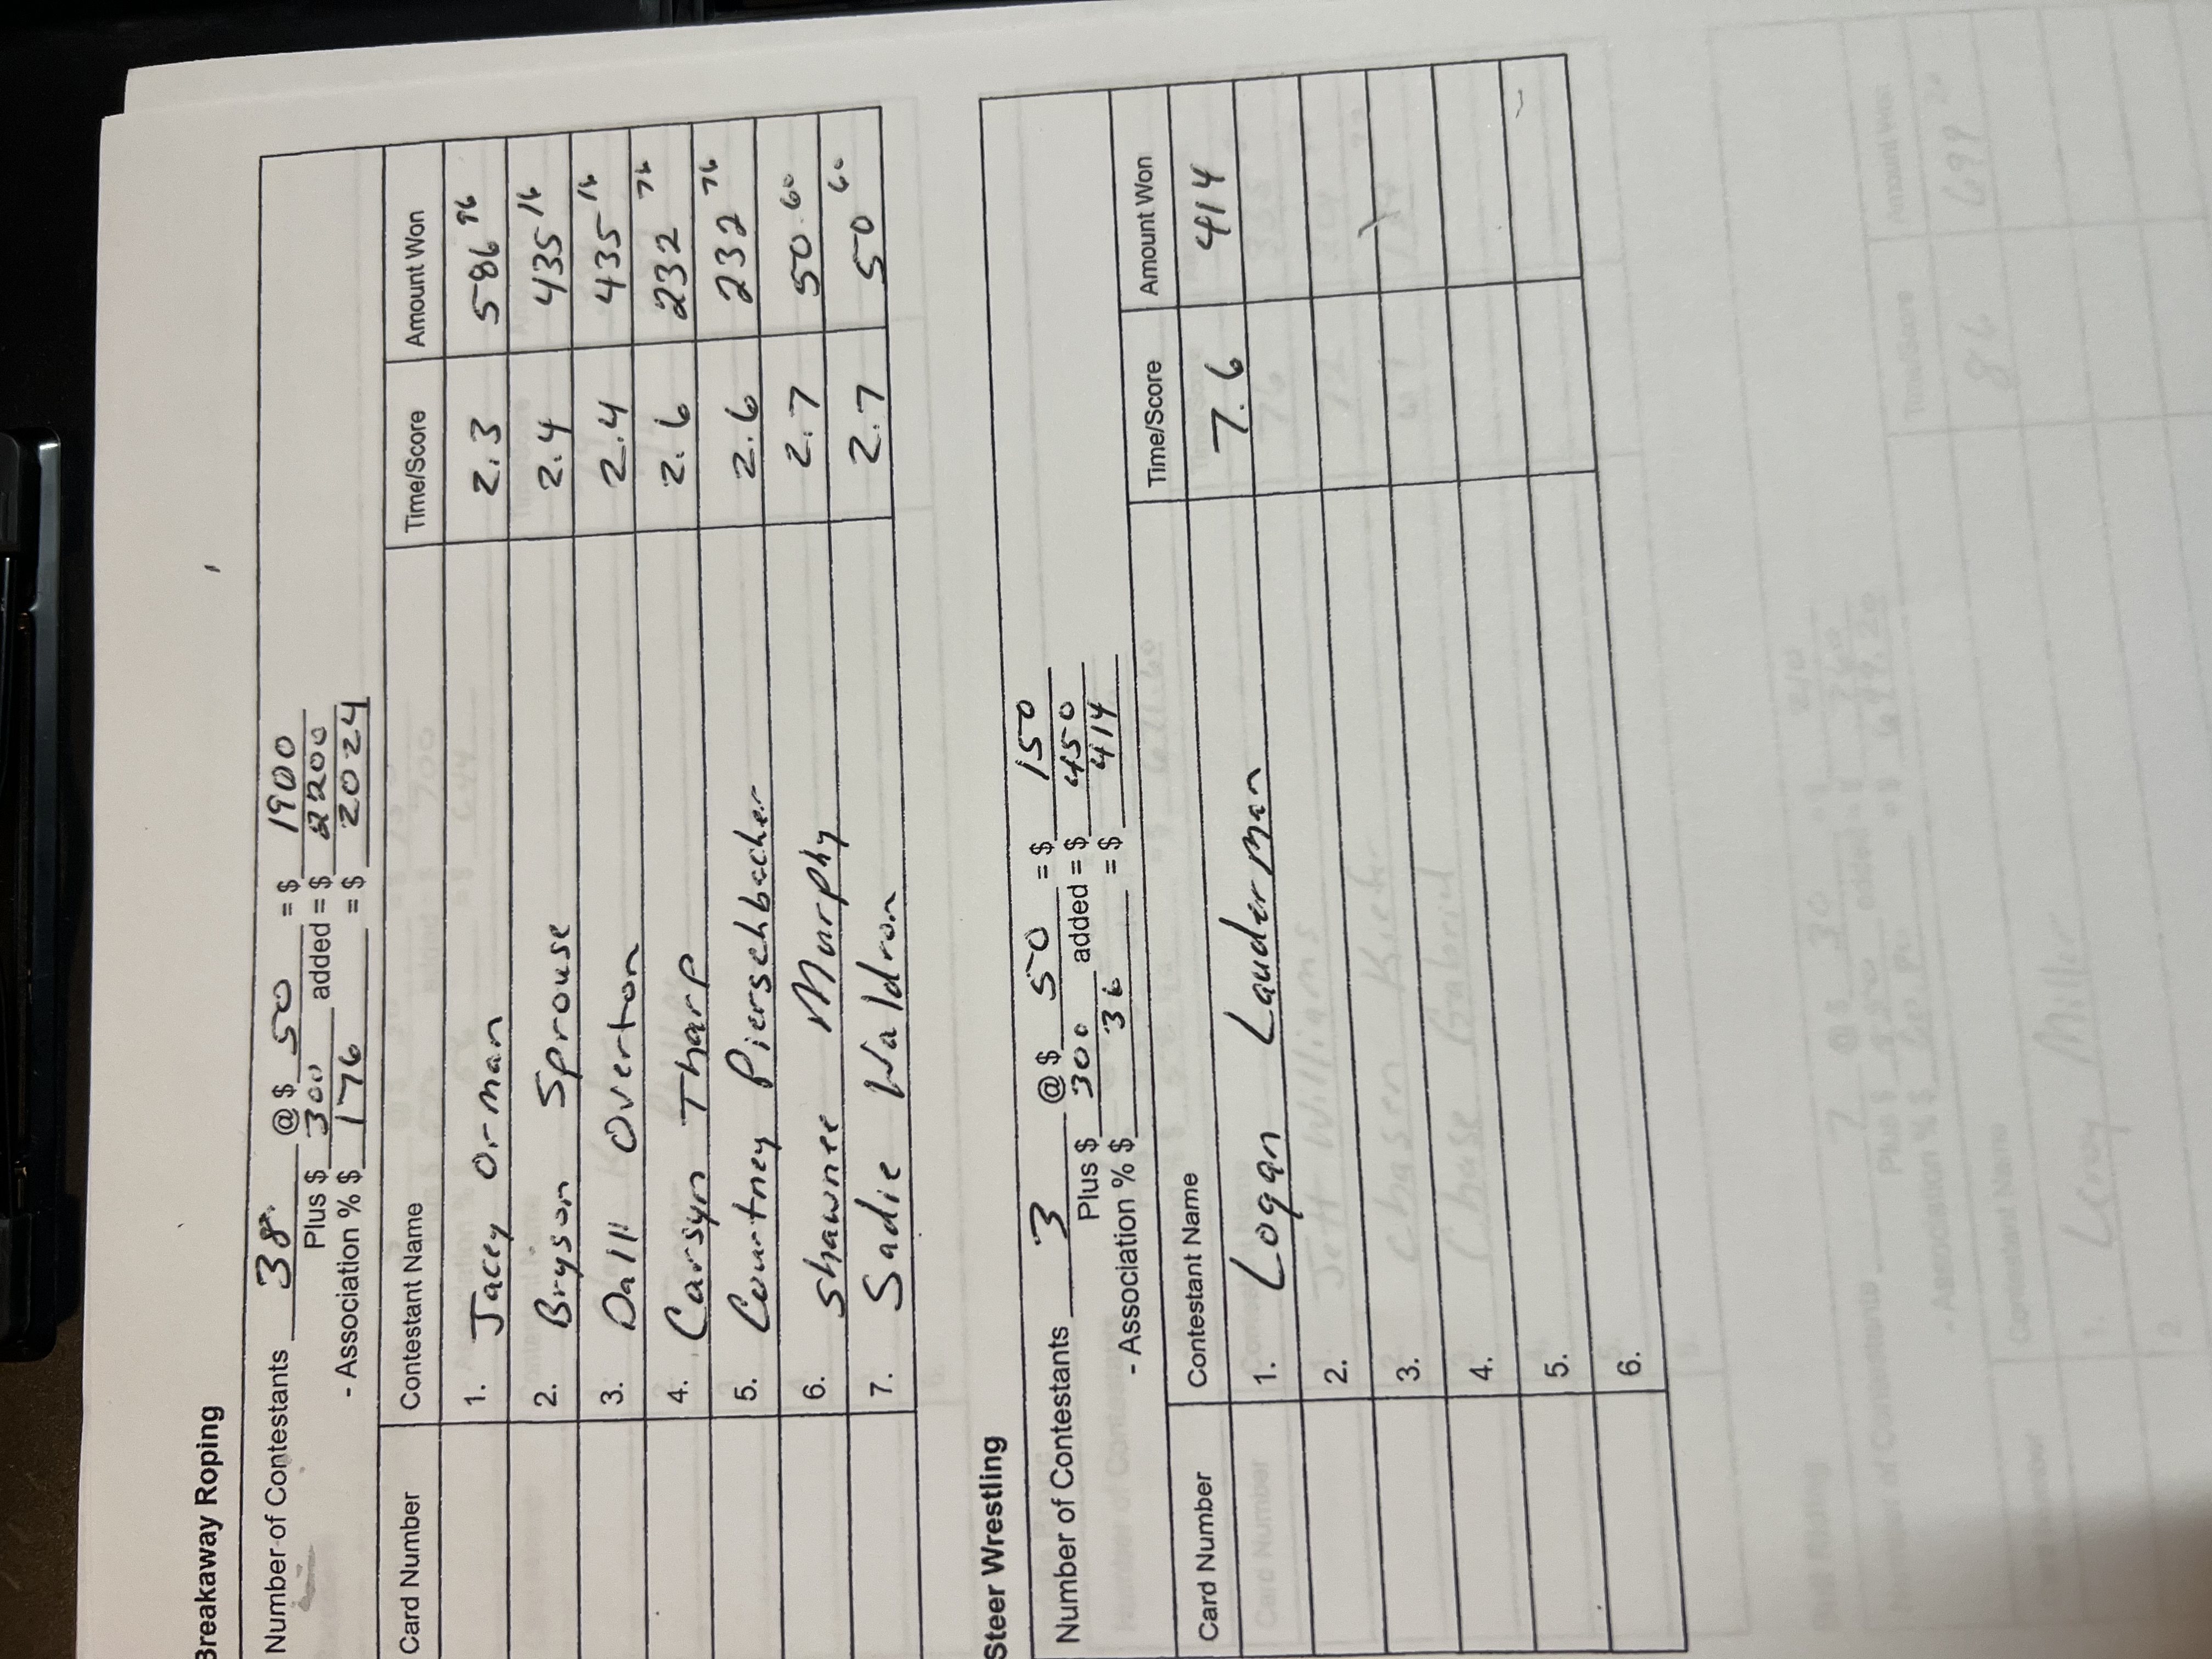 Breakaway Roping
Number of Contestants 38 @ $ 50 = $ 1900
Plus $ 300 added = $ 2200
- Association % $ 176 = $ 2024
Card Number Contestant Name Time/Score Amount Won
1. Jacey Orman 2.3 586 96
2. Bryson Sprouse 2.4 435 16
3. Dall Overton 2.4 435 16
4. Carsyn Tharp 2.6 232 76
5. Courtney Pierschbacher 2.6 232 76
6. Shawnee Murphy 2.7 50.60
7. Sadie Waldron 2.7 50 60
Steer Wrestling
Number of Contestants 3 @ $ 50 = $ 150
Plus $ 300 added = $ 450
- Association % $ 36 = $ 414
Card Number Contestant Name Time/Score Amount Won
1. Logan Lauderman 7.6 414
2.
3.
4.
5.
6.